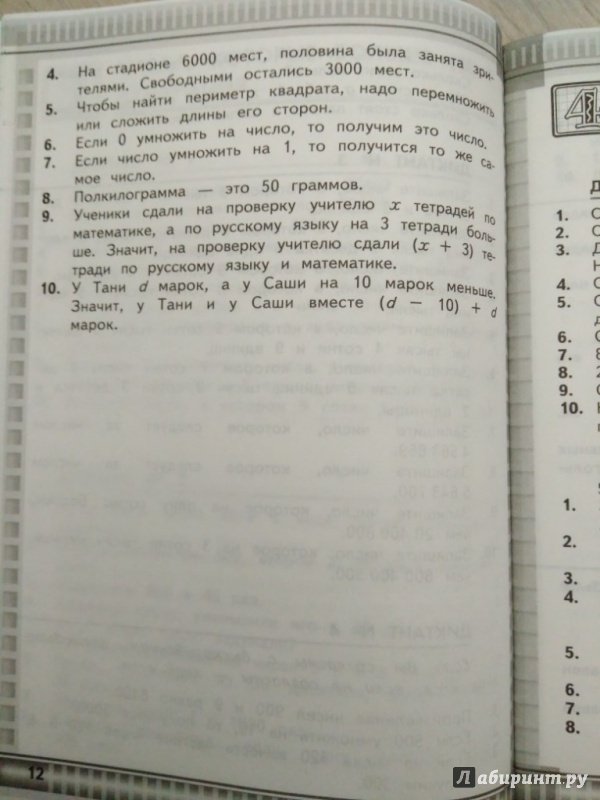 4. На стадионе 6000 мест, половина была занята зри-
телями. Свободными остались 3000 мест.
5. Чтобы найти периметр квадрата, надо перемножить
или сложить длины его сторон.
6. Если 0 умножить на число, то получим это число.
7. Если число умножить на 1, то получится то же са-
мое число.
8. Полкилограмма — это 50 граммов.
9. Ученики сдали на проверку учителю x тетрадей по
математике, а по русскому языку на 3 тетради боль-
ше. Значит, на проверку учителю сдали (x + 3) те-
тради по русскому языку и математике.
10. У Тани d марок, а у Саши на 10 марок меньше.
Значит, у Тани и у Саши вместе (d − 10) + d
марок.
12
4
Д
1. С
2. С
3. Д
Н
4. С
5. С
д
6. С
7. 8
8. 2
9. С
10.
1.
2.
3.
4.
5.
6.
7.
8.
Лабиринт.ру